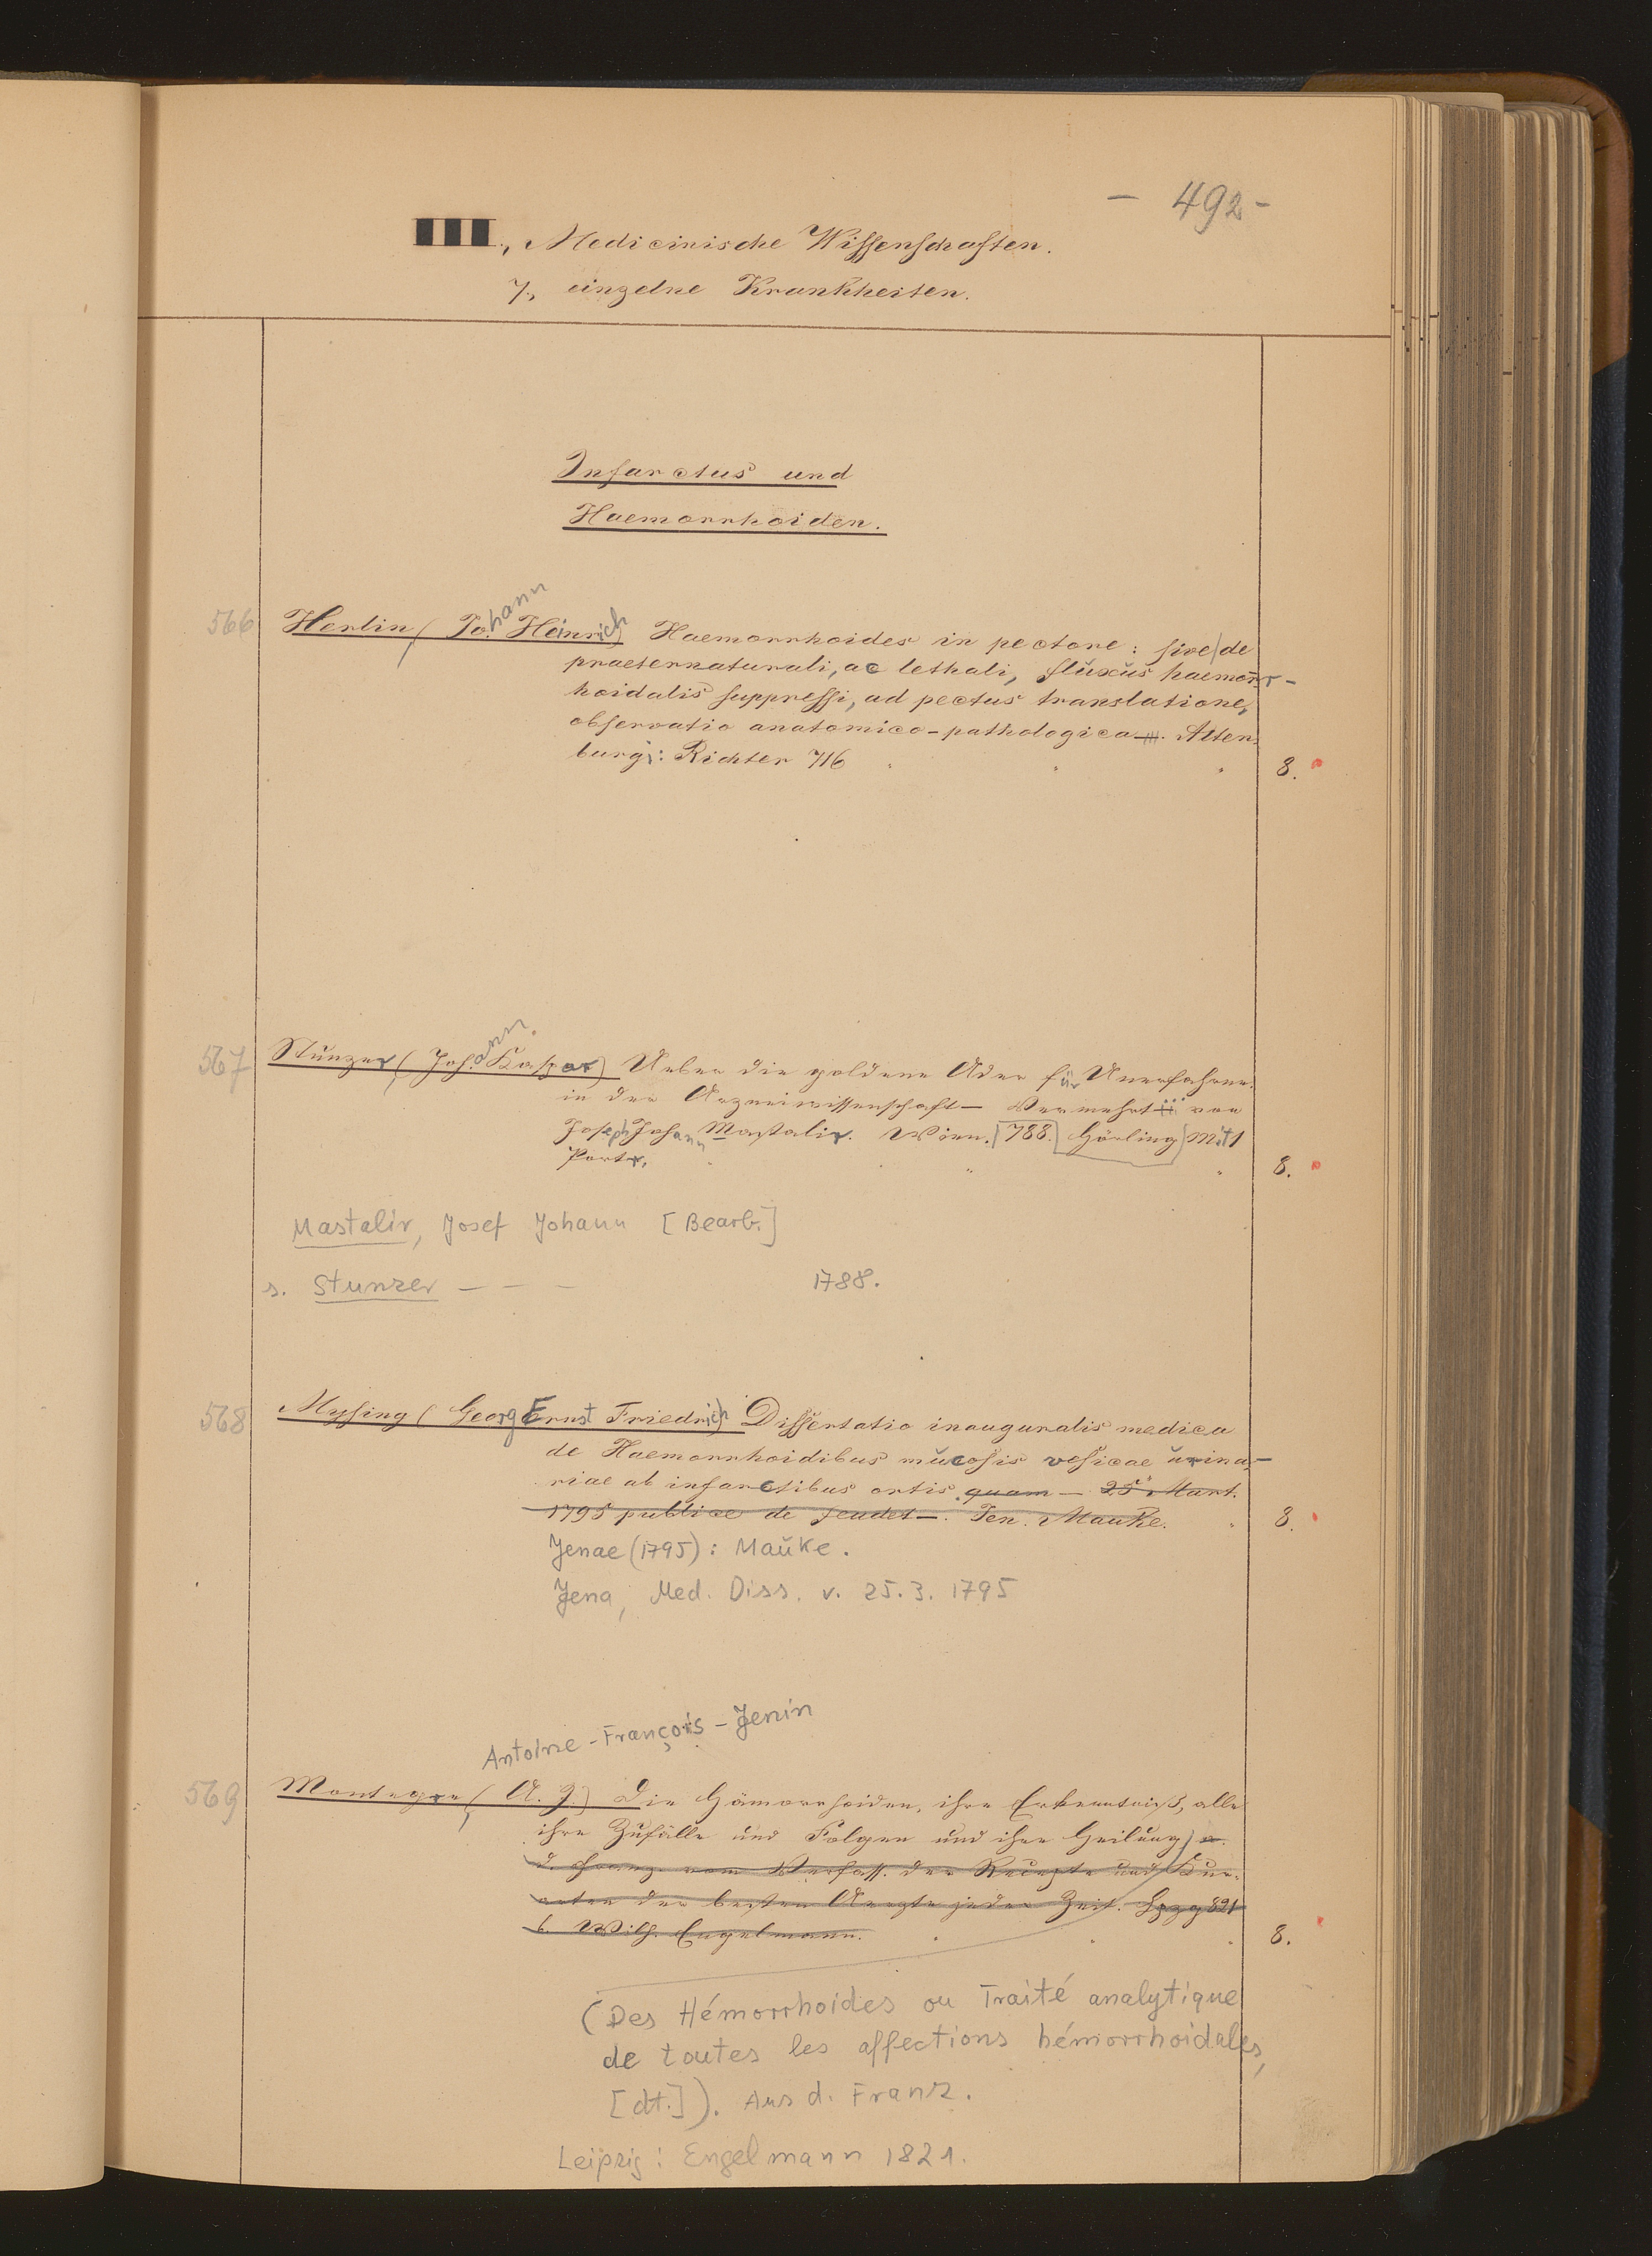 - 492 -
III., Medicinische Wissenschaften.
7., einzelne Krankheiten.
Infarctus und
Haemorrhoiden.
566 Herlin (Johann Heinrich Haemorrhoides in pectore: sive de
praeternaturali, ac lethali, fluxus haemorr-
hoidalis suppressi, ad pectus translatione,
observatio anatomico-pathologica —. Alten-
burgi: Richter 716 8.
567 Stunzer, (Johann Kaspar) Ueber die goldene Ader für Unerfahrne
in der Arzneiwissenschaft — Vermehrt von
Joseph Johann Mastalir. Wien. 788. Hörling Mit 1
Portr. 8.
Mastalir, Josef Johann [Bearb.]
s. Stunzer — — — 1788.
568 Mysing (Georg Ernst Friedrich Dissertatio inauguralis medica
de Haemorrhoidibus mucosis vesicae urina-
riae ab infarctibus ortis quam — 25 Mart.
1795 publice de fendet —. Jen. Mauke. 8.
Jenae (1795): Mauke.
Jena, Med. Diss. v. 25.3.1795
Antoine-François-Jenin
569 Montegre, (A. J.) Die Hämorrhoiden, ihre Erkenntniß, alle
ihre Zufälle und Folgen und ihre Heilung) a.
d. Franz. vom Verfass. der Recepte und Kur-
arten der besten Aerzte jeder Zeit. Lpzg 821
b. Wilh. Engelmann. 8.
(Des Hémorrhoides ou Traité analytique
de toutes les affections hémorrhoidales,
[dt.]). Aus d. Franz.
Leipzig: Engelmann 1821.